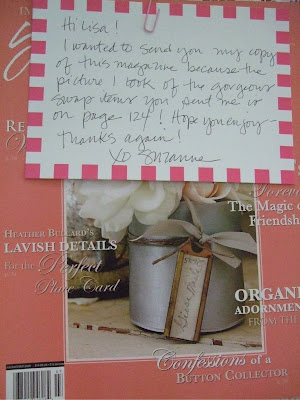 Hi Lisa!
I wanted to send you my copy
of this magazine because the
picture I took of the gorgeous
swap items you sent me is
on page 124! Hope you enjoy
Thanks again!
XO Suzanne
The Magic of
Friendsh
HEATHER BULLARD'S
LAVISH DETAILS
For the Perfect
Place Card
ORGANI
ADORNMEN
FROM THE
Confessions of a
BUTTON COLLECTOR